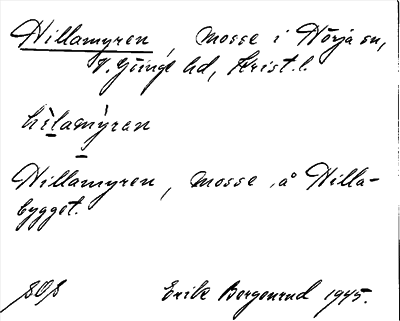 Hillamyren, mosse i Hörja sn,
V. Göinge hd, Krist. l.
hìlamỳran
Hillamyren, mosse å Hilla-
bygget.
SOS Erik Borgenrud 1945.